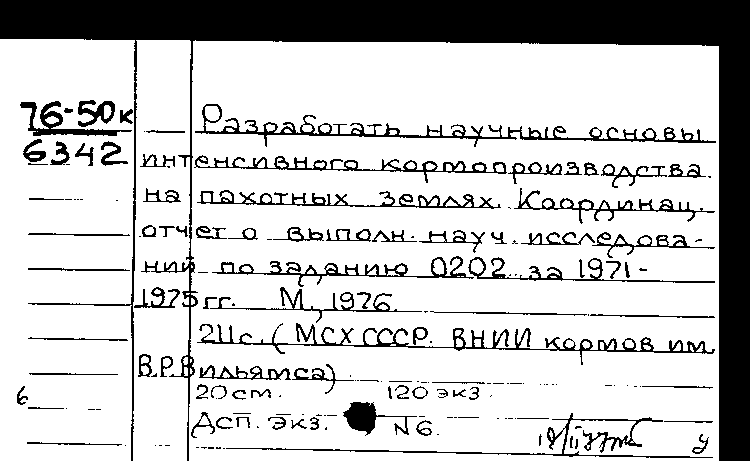 76-50к
6342
Разработать научные основы
интенсивного кормопроизводства
на пахотных землях. Координац.
отчет о выполн. науч. исследова-
ний по заданию 0202 за 1971-
1975 гг. М., 1976.
211с. (МСХ СССР. ВНИИ кормов им.
В.Р.Вильямса)
20см. 120 экз.
Дсп. экз. №6.
6
у